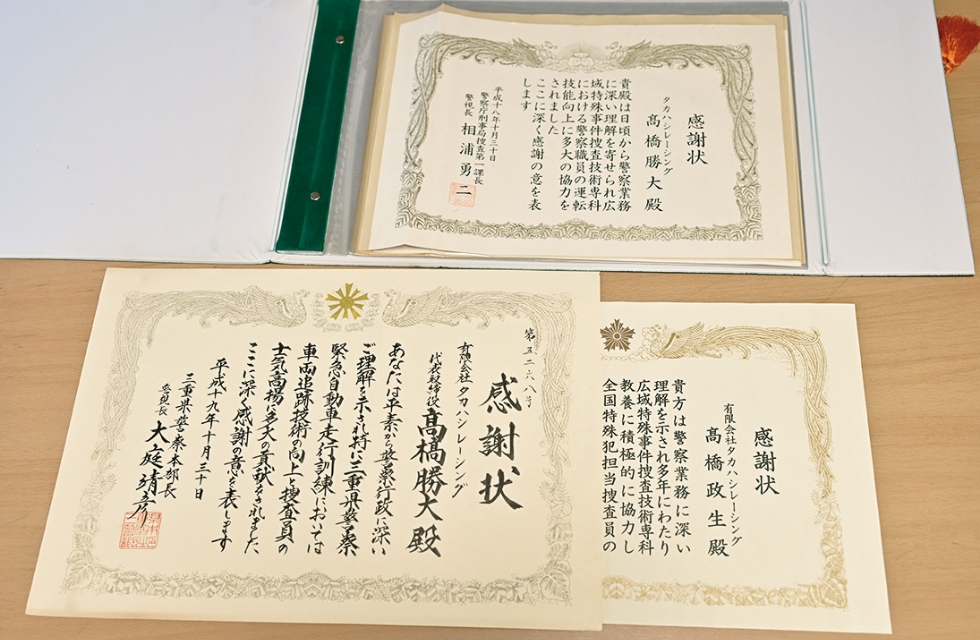 感謝状
タカハシレーシング
髙橋勝大殿
貴殿は日頃から警察業務
に深い理解を寄せられ広
域特殊事件捜査技術専科
における警察職員の運転
技能向上に多大の協力を
されました
ここに深く感謝の意を表
します
平成十八年十月三十日
警察庁刑事局捜査第一課長
警視長 相浦勇二
第五二六八号
感謝状
有限会社タカハシレーシング
代表取締役 髙橋勝大殿
あなたは平素から警察行政に深い
ご理解を示され特に三重県警察
緊急自動車走行訓練においては
車両追跡技術の向上と捜査員の
士気高揚に多大の貢献をされました
ここに深く感謝の意を表します
平成十九年十月三十日
三重県警察本部長
警視長 大庭靖彦
感謝状
有限会社タカハシレーシング
髙橋政生殿
貴方は警察業務に深い
理解を示され多年にわたり
広域特殊事件捜査技術専科
教養に積極的に協力し
全国特殊犯担当捜査員の